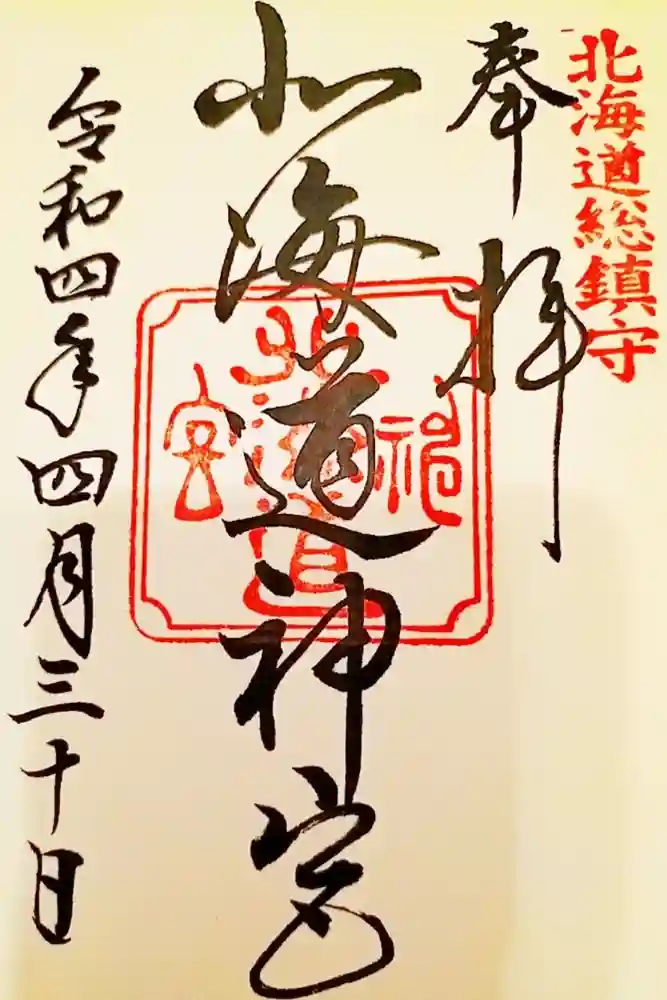 北海道総鎮守
奉拝
北海道神宮
北海道神宮
令和四年四月三十日